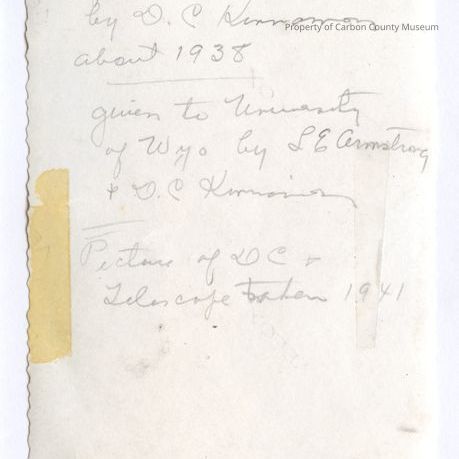 by D. C Kinnaman
Property of Carbon County Museum
about 1938
given to University
of Wyo by L E Armstrong
& D. C Kinnaman
Picture of DC &
Telescope taken 1941